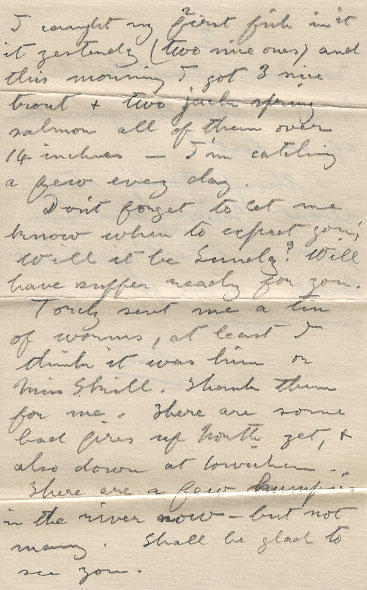 I caught my first fish in it
it yesterday (two nice ones) and
this morning I got 3 nice
trout & two jack spring
salmon all of them over
14 inches — I'm catching
a few every day.
Don't forget to let me
know when to expect you;
Will it be Sunday? Will
have supper ready for you.
sent me a tin
of worms, at least I
think it was him or
Miss Skrill. Thank them
for me. There are some
bad fires up North yet, &
also down at Cowichan.
There are a few humpies
in the river now — but not
many. Shall be glad to
see you.